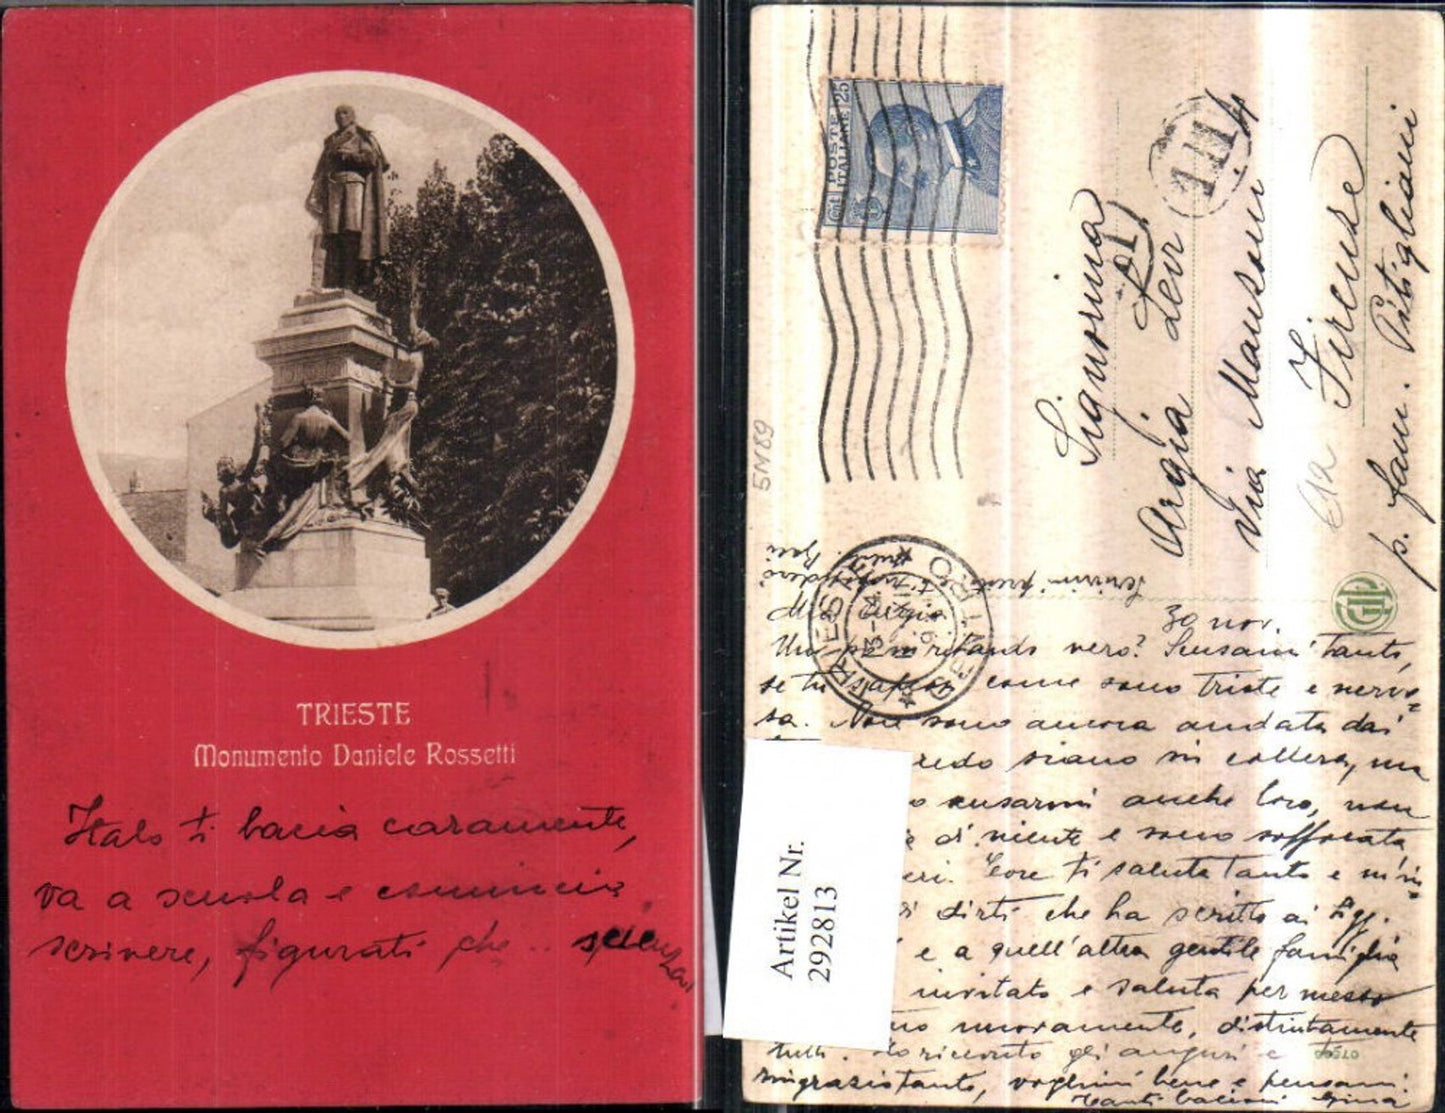 TRIESTE
Monumento Daniele Rossetti
Italo ti bacia caramente,
va a scuola e comincia
scrivere, figurati che .. scienza!
POSTE
ITALIANE
Cent 25
Signorina
Argia Levi
Via Mansoni 4
Firense
p. fam. Pitigliani
5N89
TRIESTE
CENTRO
30 nov.
vero? Scusami tanto,
se tu sapessi come sono triste e nervo-
sa. Non sono ancora andata dai
credo siano in collera, ma
scusarmi anche loro, non
di niente e sono soffocata
Core ti saluta tanto e m'in-
dirti che ha scritto ai Sigg.
e a quell'altra gentile famiglia
invitato e saluta per mezzo
nuovamente, distintamente
tutti. Ho ricevuto gli auguri e
ringrazio tanto, voglimi bene e pensami.
Tanti bacioni Gina
07590
Artikel Nr.
292813